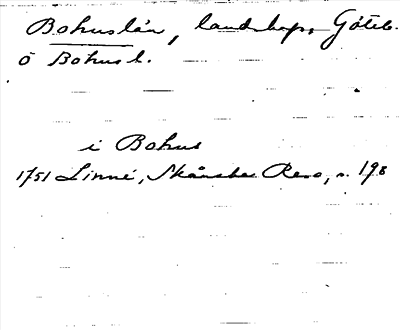 Bohuslän, landskap, Göteb.
o Bohusl.
i Bohus
1751 Linné, Skånska Resa, s. 198